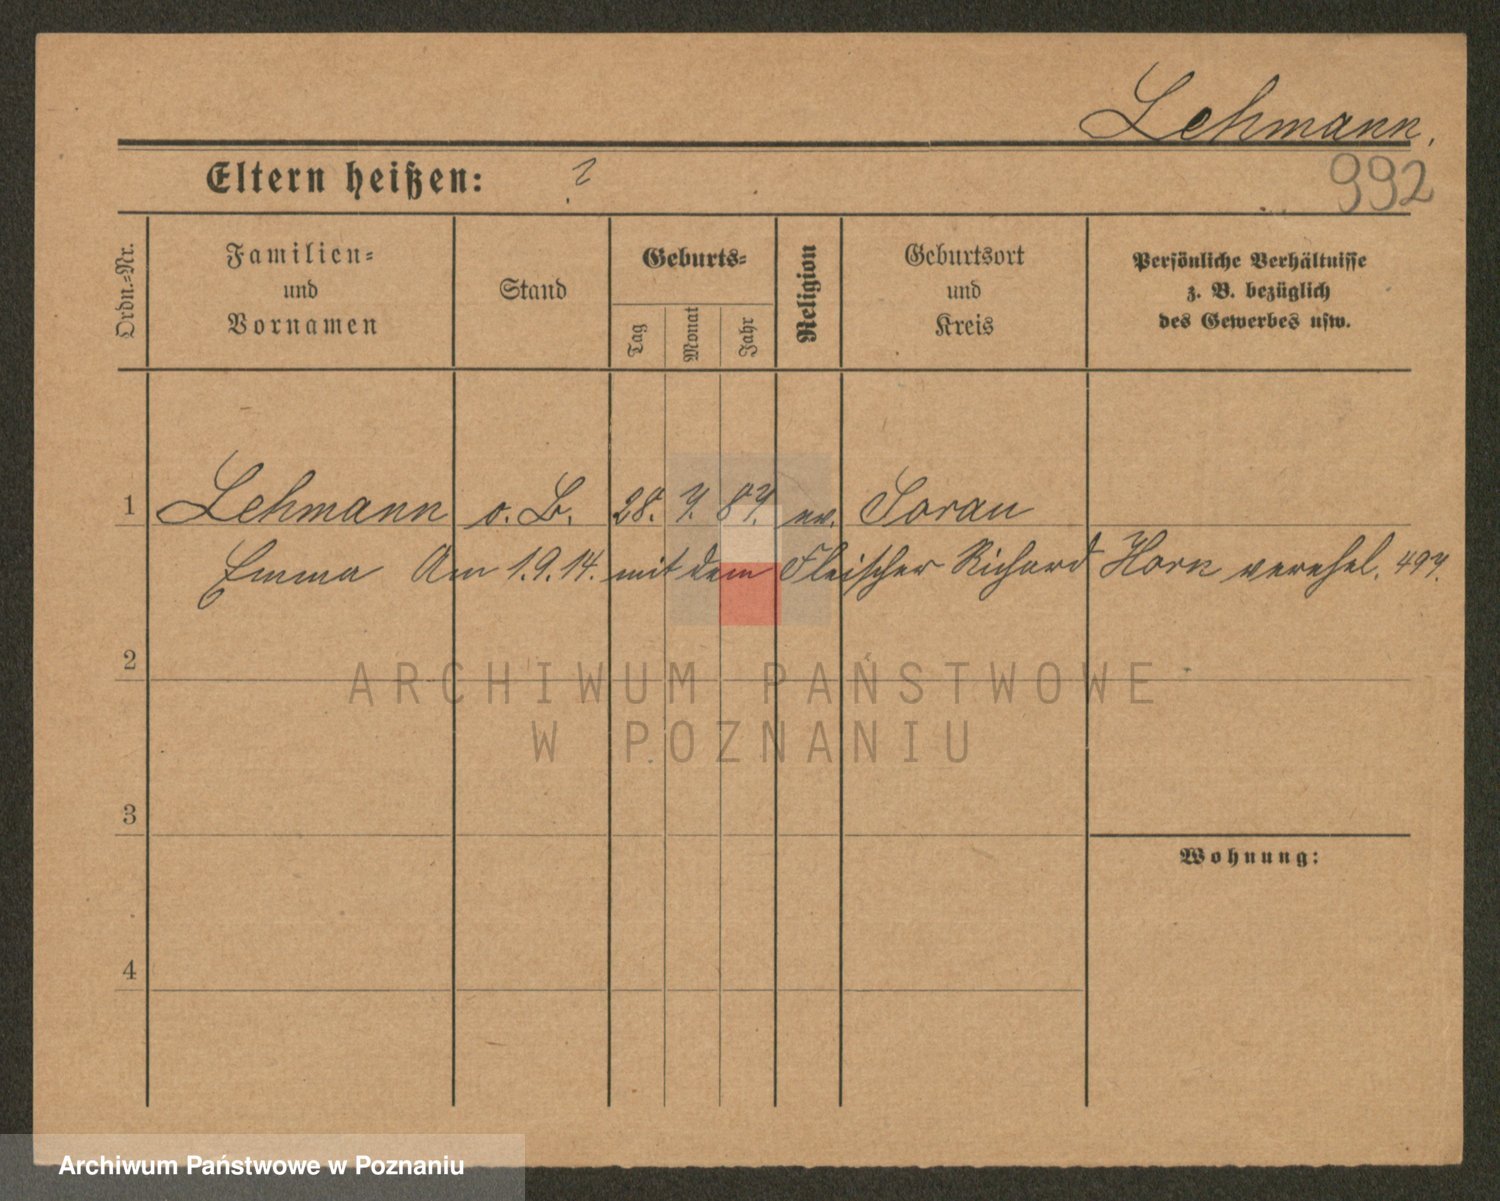 Lehmann.
992
Eltern heißen: ?
Ordn.=Nr.
Familien=
und
Vornamen
Stand
Geburts=
Tag
Monat
Jahr
Religion
Geburtsort
und
Kreis
Persönliche Verhältnisse
z. B. bezüglich
des Gewerbes usw.
1 Lehmann o. B. 28. 7. 87. ev. Sorau
Emma Am 1.9.14. mit dem Fleischer Richard Horn verehel. 497.
2
ARCHIWUM PAŃSTWOWE
W POZNANIU
3
Wohnung:
4
Archiwum Państwowe w Poznaniu